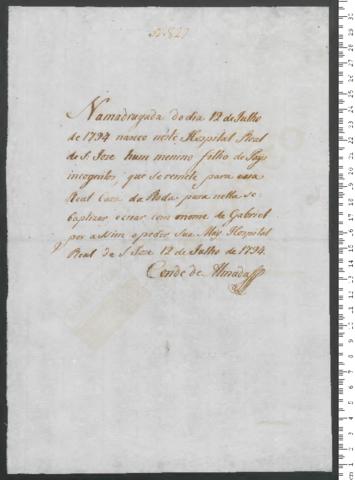 Namadrugada do dia 12 de Julho
de 1794 nasceo neste Hospital Real
de S. Joze hum menino filho de Pays
incognitos, que se remete para essa
Real Caza da Roda para nella se
baptizar e criar com onome de Gabriel
por assim o pedir sua May. Hospital
Real de S. Joze 12 de Julho de 1794.
Conde de Almada